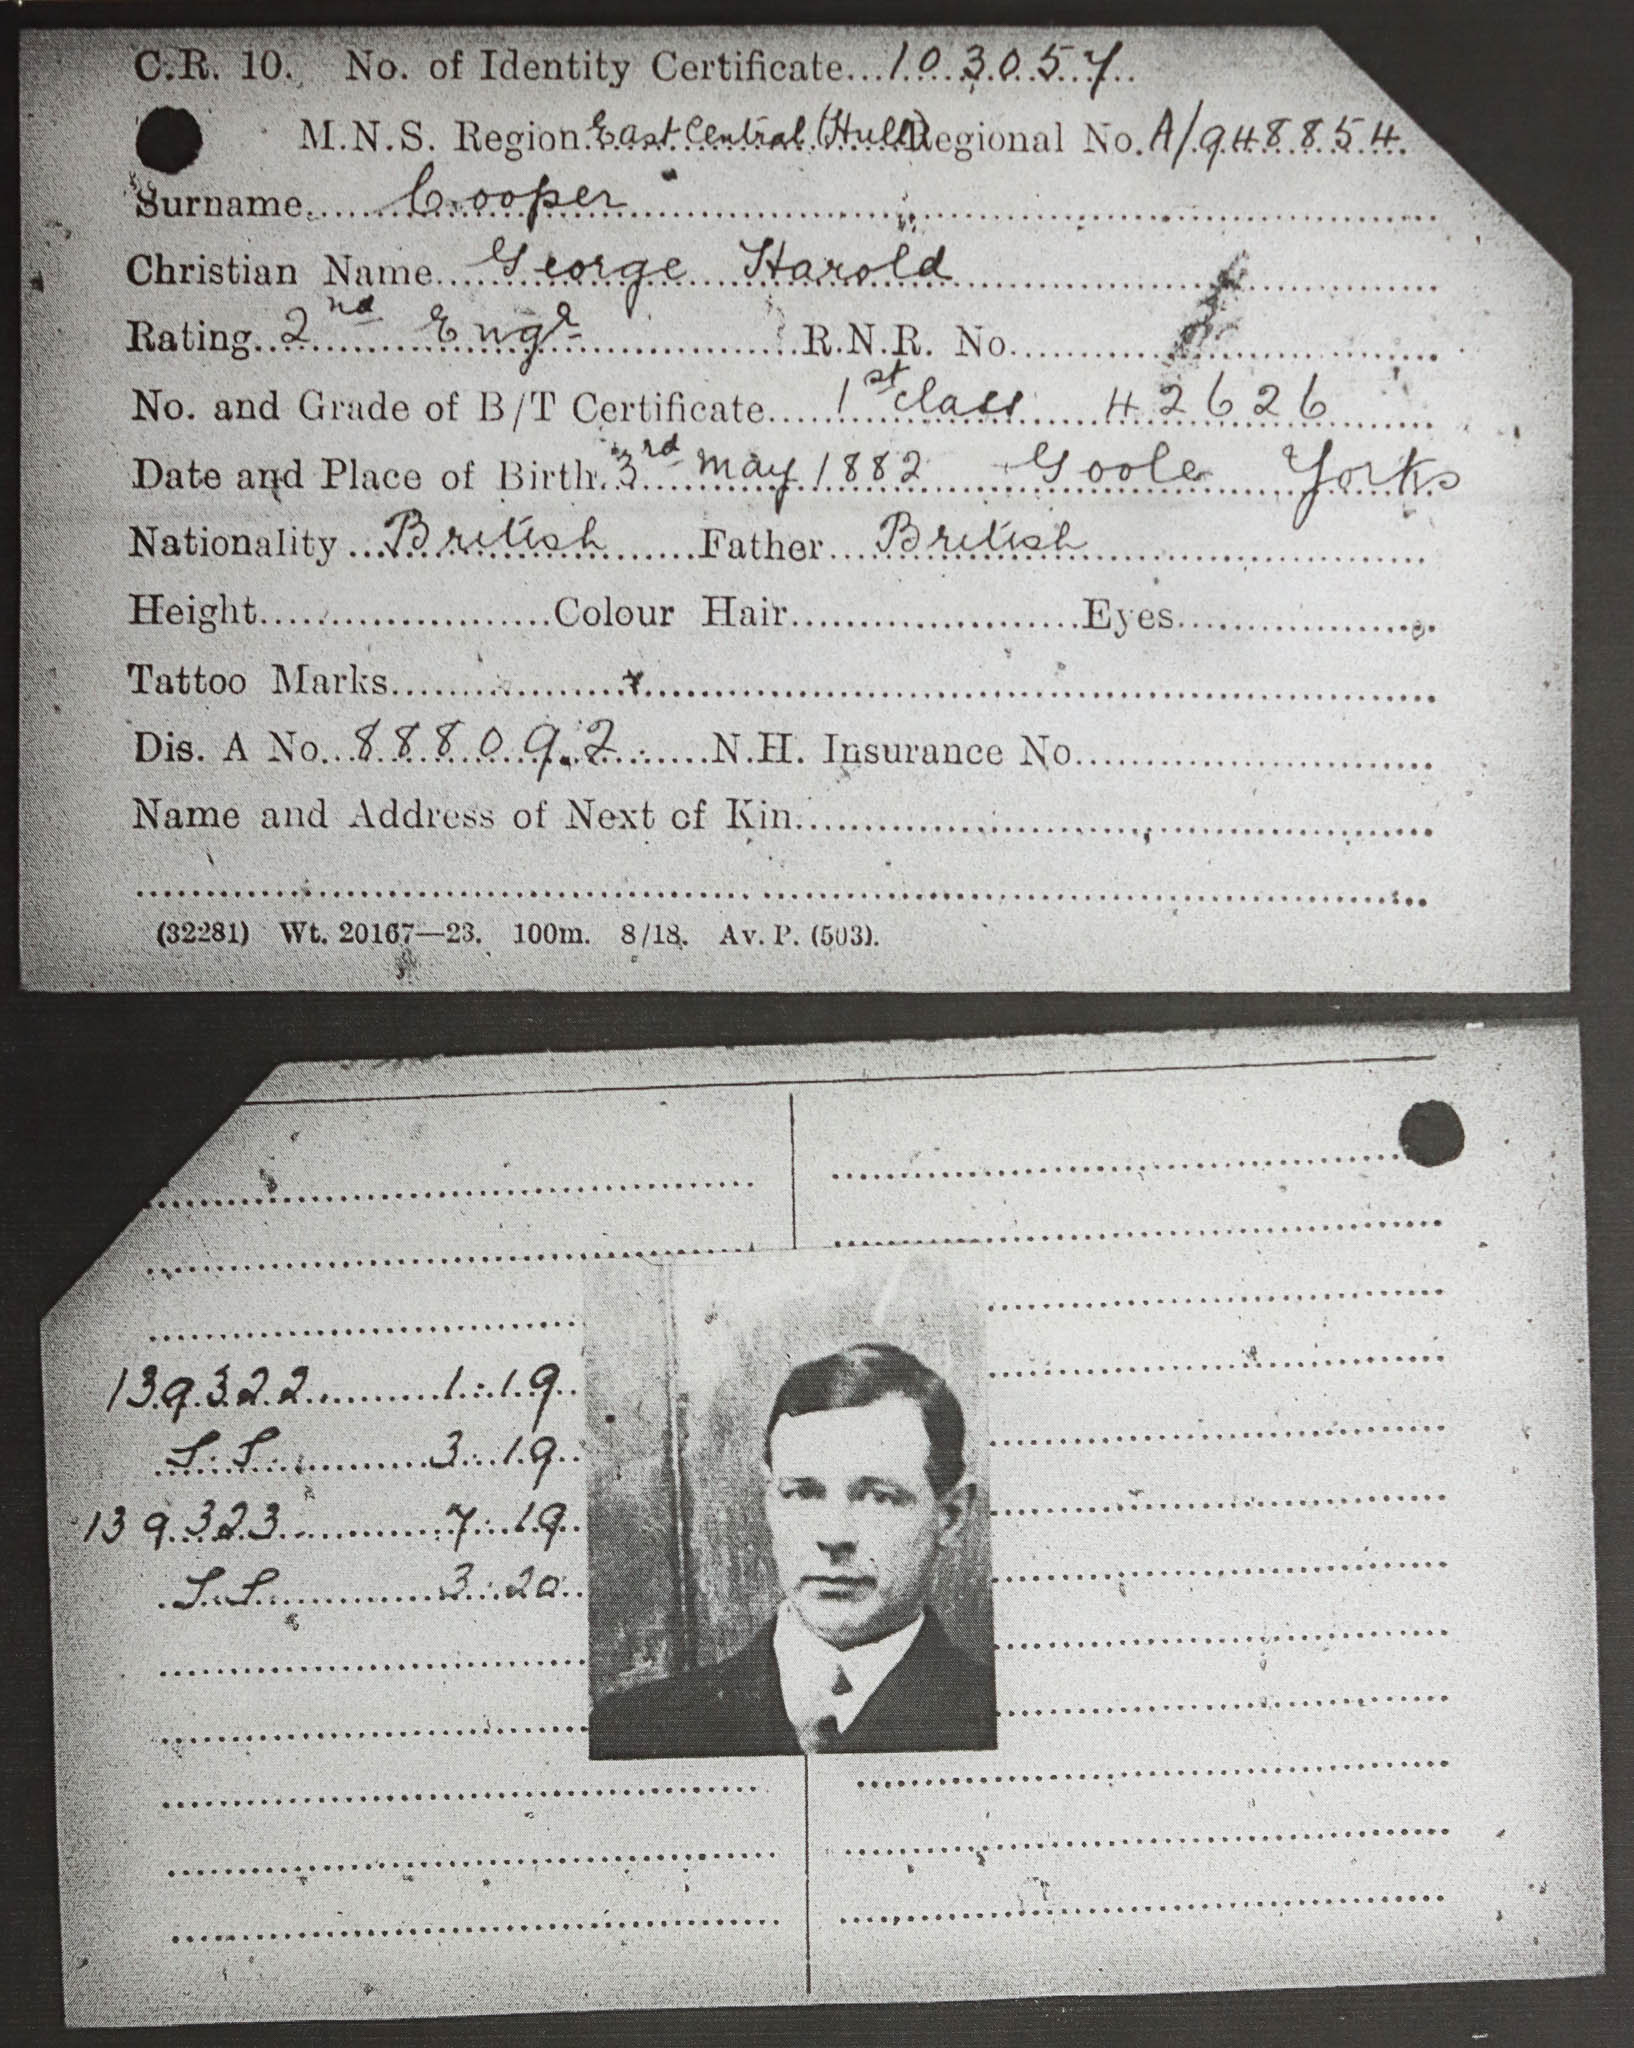 C.R. 10. No. of Identity Certificate...103057..
M.N.S. Region East Central (Hull) Regional No. A/948854.
Surname Cooper
Christian Name George Harold
Rating 2nd Engr R.N.R. No.
No. and Grade of B/T Certificate 1st class 42626
Date and Place of Birth. 3rd May 1882 Goole Yorks
Nationality British Father British
Height Colour Hair Eyes
Tattoo Marks
Dis. A No. 888092 N.H. Insurance No.
Name and Address of Next of Kin
(32281) Wt. 20167—23. 100m. 8/18. Av. P. (503).
139322 1.19
S.S. 3.19
139323 7.19
S.S. 3.20